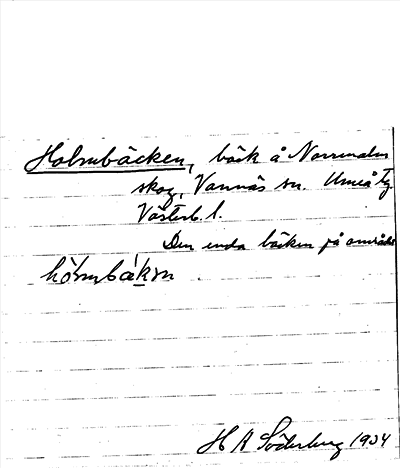 Holmbäcken, bäck å Norrmalns
skog, Vännäs sn. Umeå Tg
Västerb. l.
Den enda bäcken på området
hólmbäkɛn.
H A Söderberg 1934